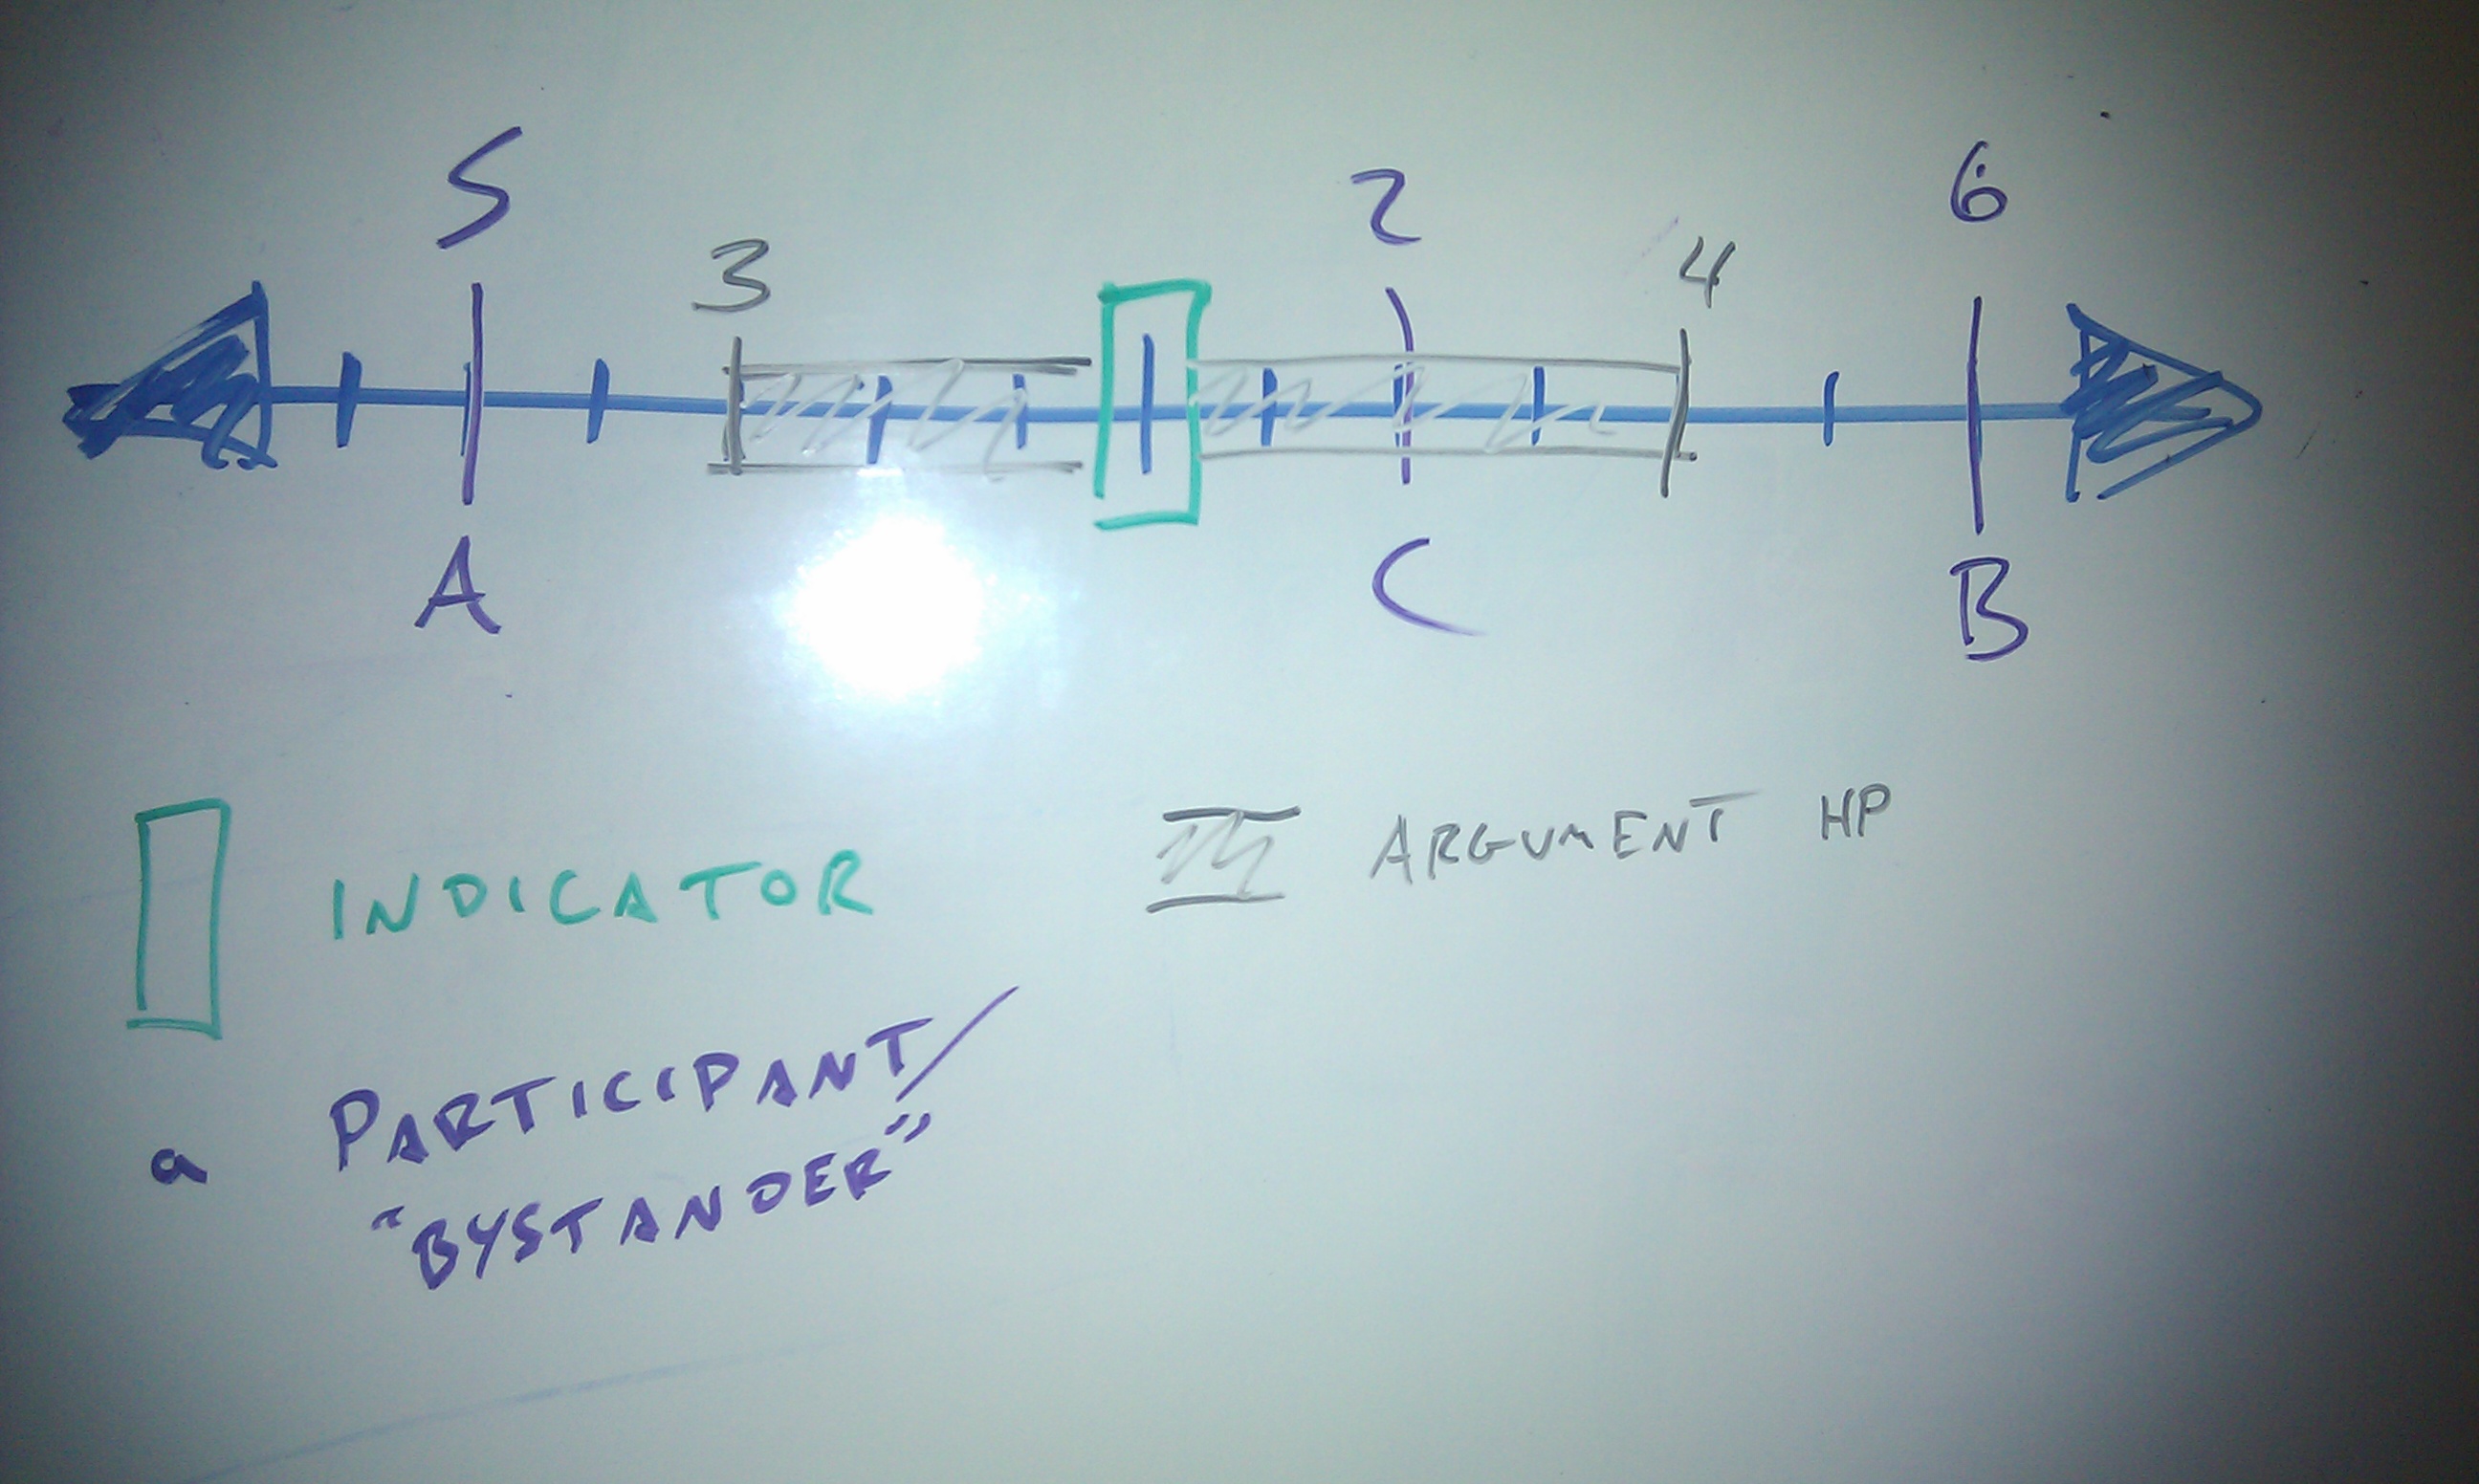 5 2 6
3 4
A C B
INDICATOR
ARGUMENT HP
a PARTICIPANT/
"BYSTANDER"